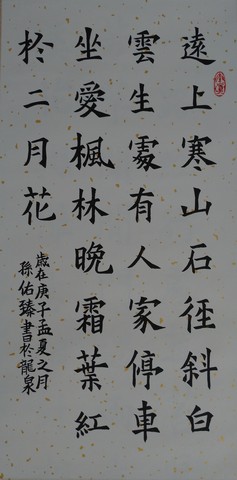 遠上寒山石徑斜白
雲生處有人家停車
坐愛楓林晚霜葉紅
於二月花
歲在庚子孟夏之月
孫佑臻書於龍泉